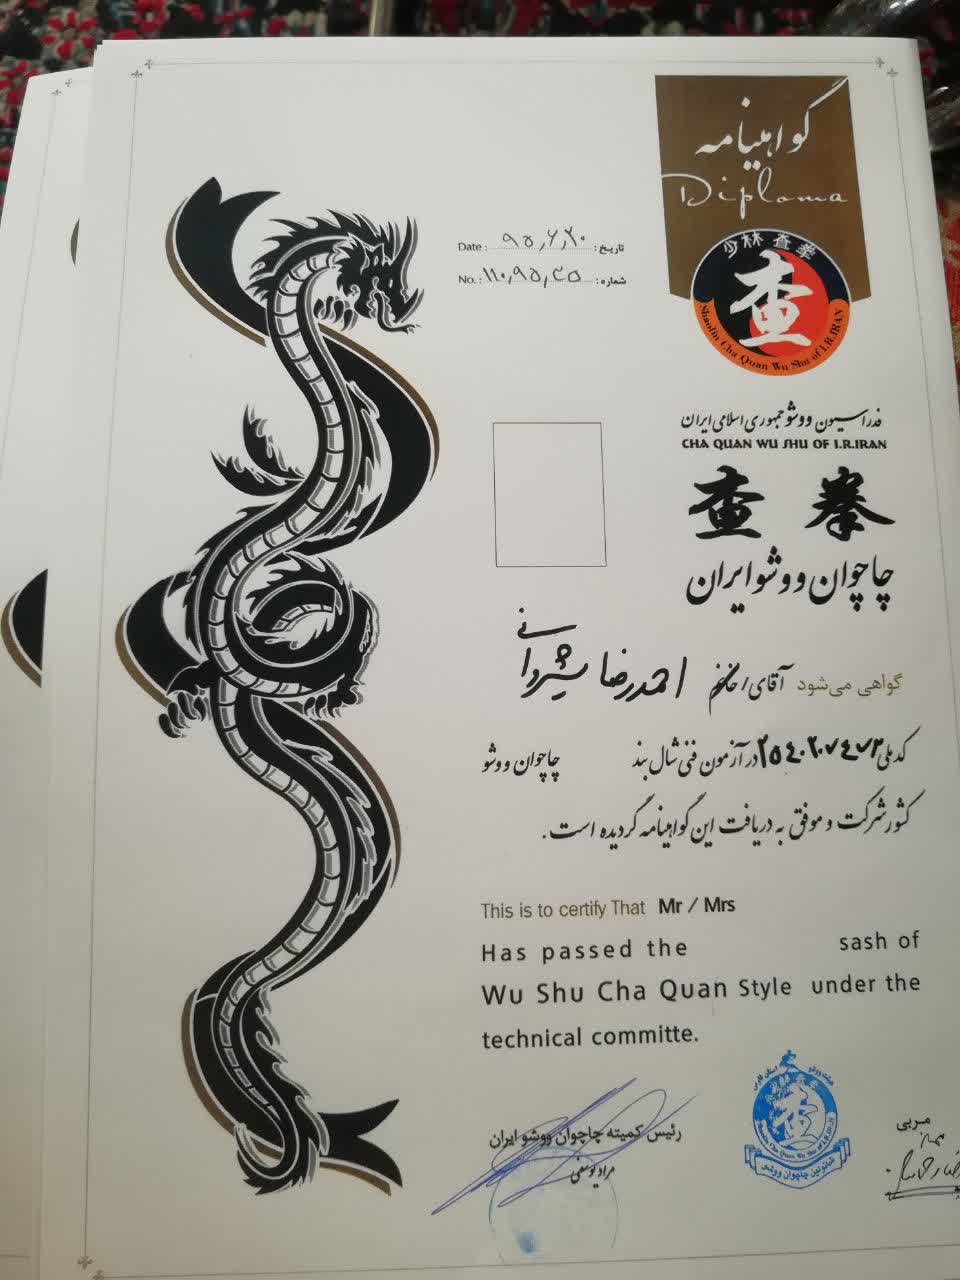 گواهینامه
Diploma
少林查拳
查
Shaolin Cha Quan Wu Shu of I.R.IRAN
Date: ۹۵٫۶٫۲۰ تاریخ:
No.: ۱۱۰٫۹۵٫۳۵ شماره:
فدراسیون ووشو جمهوری اسلامی ایران
CHA QUAN WU SHU OF I.R.IRAN
查 拳
چاچوان ووشو ایران
گواهی می‌شود آقای/خانم احمدرضا شیروانی
کد ملی ۲۵۴۰۲۰۷۴۷۳ در آزمون فنی شال بند چاچوان ووشو
کشور شرکت و موفق به دریافت این گواهینامه گردیده است.
This is to certify That Mr / Mrs
Has passed the sash of
Wu Shu Cha Quan Style under the
technical committe.
رئیس کمیته چاچوان ووشو ایران
مراد یوسفی
هیئت ووشو استان فارس
Shaolin Cha Quan Wu Shu of I.R.IRAN
شائولین چاچوان ووشو
مربی